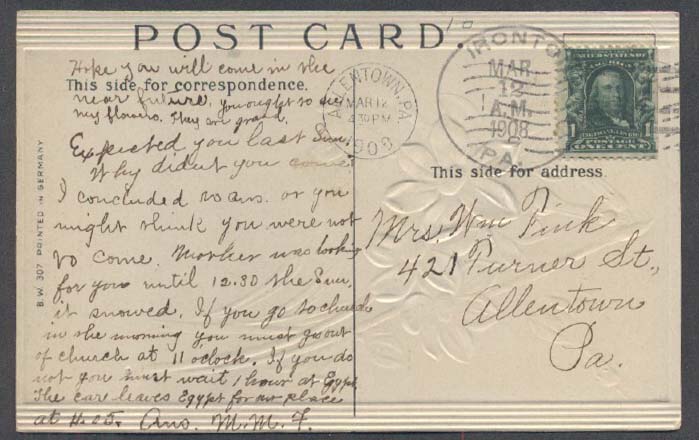 POST CARD.
10
Hope you will come in the
This side for correspondence.
near future, you ought so see
my flowers. They are grand.
Expected you last Sun.
Why didn't you come.
I concluded to ans. or you
might think you were not
to come. Mother was looking
for you until 12.30 the Sun.
it snowed. If you go to church
in the morning you must go out
of church at 11 o'clock. If you do
not you must wait 1 hour at Egypt
The car leaves Egypt for our place
at 11.05. Ans. M.M.F.
B.W. 307 PRINTED IN GERMANY
ALLENTOWN, PA.
MAR 12
4 30 PM
1908
IRONTON
MAR
12
A.M.
1908
PA.
1 ONE CENT
This side for address.
Mrs. Wm Fink
421 Turner St.,
Allentown
Pa.